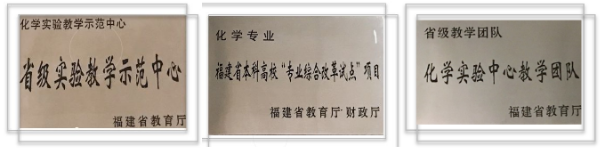 化学实验教学示范中心
省级实验教学示范中心
福建省教育厅
化学专业
福建省本科高校“专业综合改革试点”项目
福建省教育厅·财政厅
省级教学团队
化学实验中心教学团队
福建省教育厅